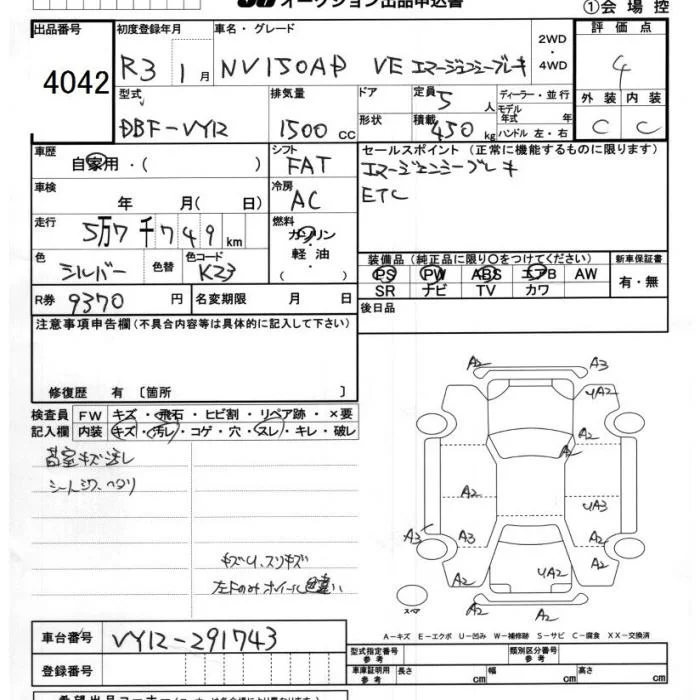 オークション出品申込書
①会場控
出品番号 4042
初度登録年月 R3 1月
車名・グレード NV150AD VE エマージェンシーブレーキ
2WD・4WD
評価点 4
外装 C 内装 C
型式 DBF-VY12
排気量 1500cc
ドア
形状
定員 5人
積載 450kg
ディーラー・並行
モデル年式 年
ハンドル 左・右
車歴 自家用・( )
シフト FAT
セールスポイント(正常に機能するものに限ります)
エマージェンシーブレーキ
ETC
車検 年 月( 日)
冷房 AC
走行 5万7千749km
燃料 ガソリン・軽油・( )
色 シルバー 色替
色コード K23
装備品(純正品に限り○をつけてください)
PS PW ABS エアB AW
SR ナビ TV カワ
新車保証書 有・無
R券 9370円
名変期限 月 日
後日品
注意事項申告欄(不具合内容等は具体的に記入して下さい)
修復歴 有〔箇所 〕
検査員記入欄
FW キズ・飛石・ヒビ割・リペア跡・×要
内装 キズ・汚レ・コゲ・穴・スレ・キレ・破レ
荷室キズ汚レ
シートシワ、ヘタリ
キズU、スリキズ
左F のみ ホイール色違い
A2 A3
UA2
A2
A2
A2 UA3
A3 A3 A2
A2 UA2 A2
A2 A2
スペア
A-キズ E-エクボ U-凹み W-補修跡 S-サビ C-腐食 XX-交換済
車台番号 VY12-291743
登録番号
型式指定番号 参考
類別区分番号 参考
車庫証明用 参考 長さ cm 幅 cm 高さ cm